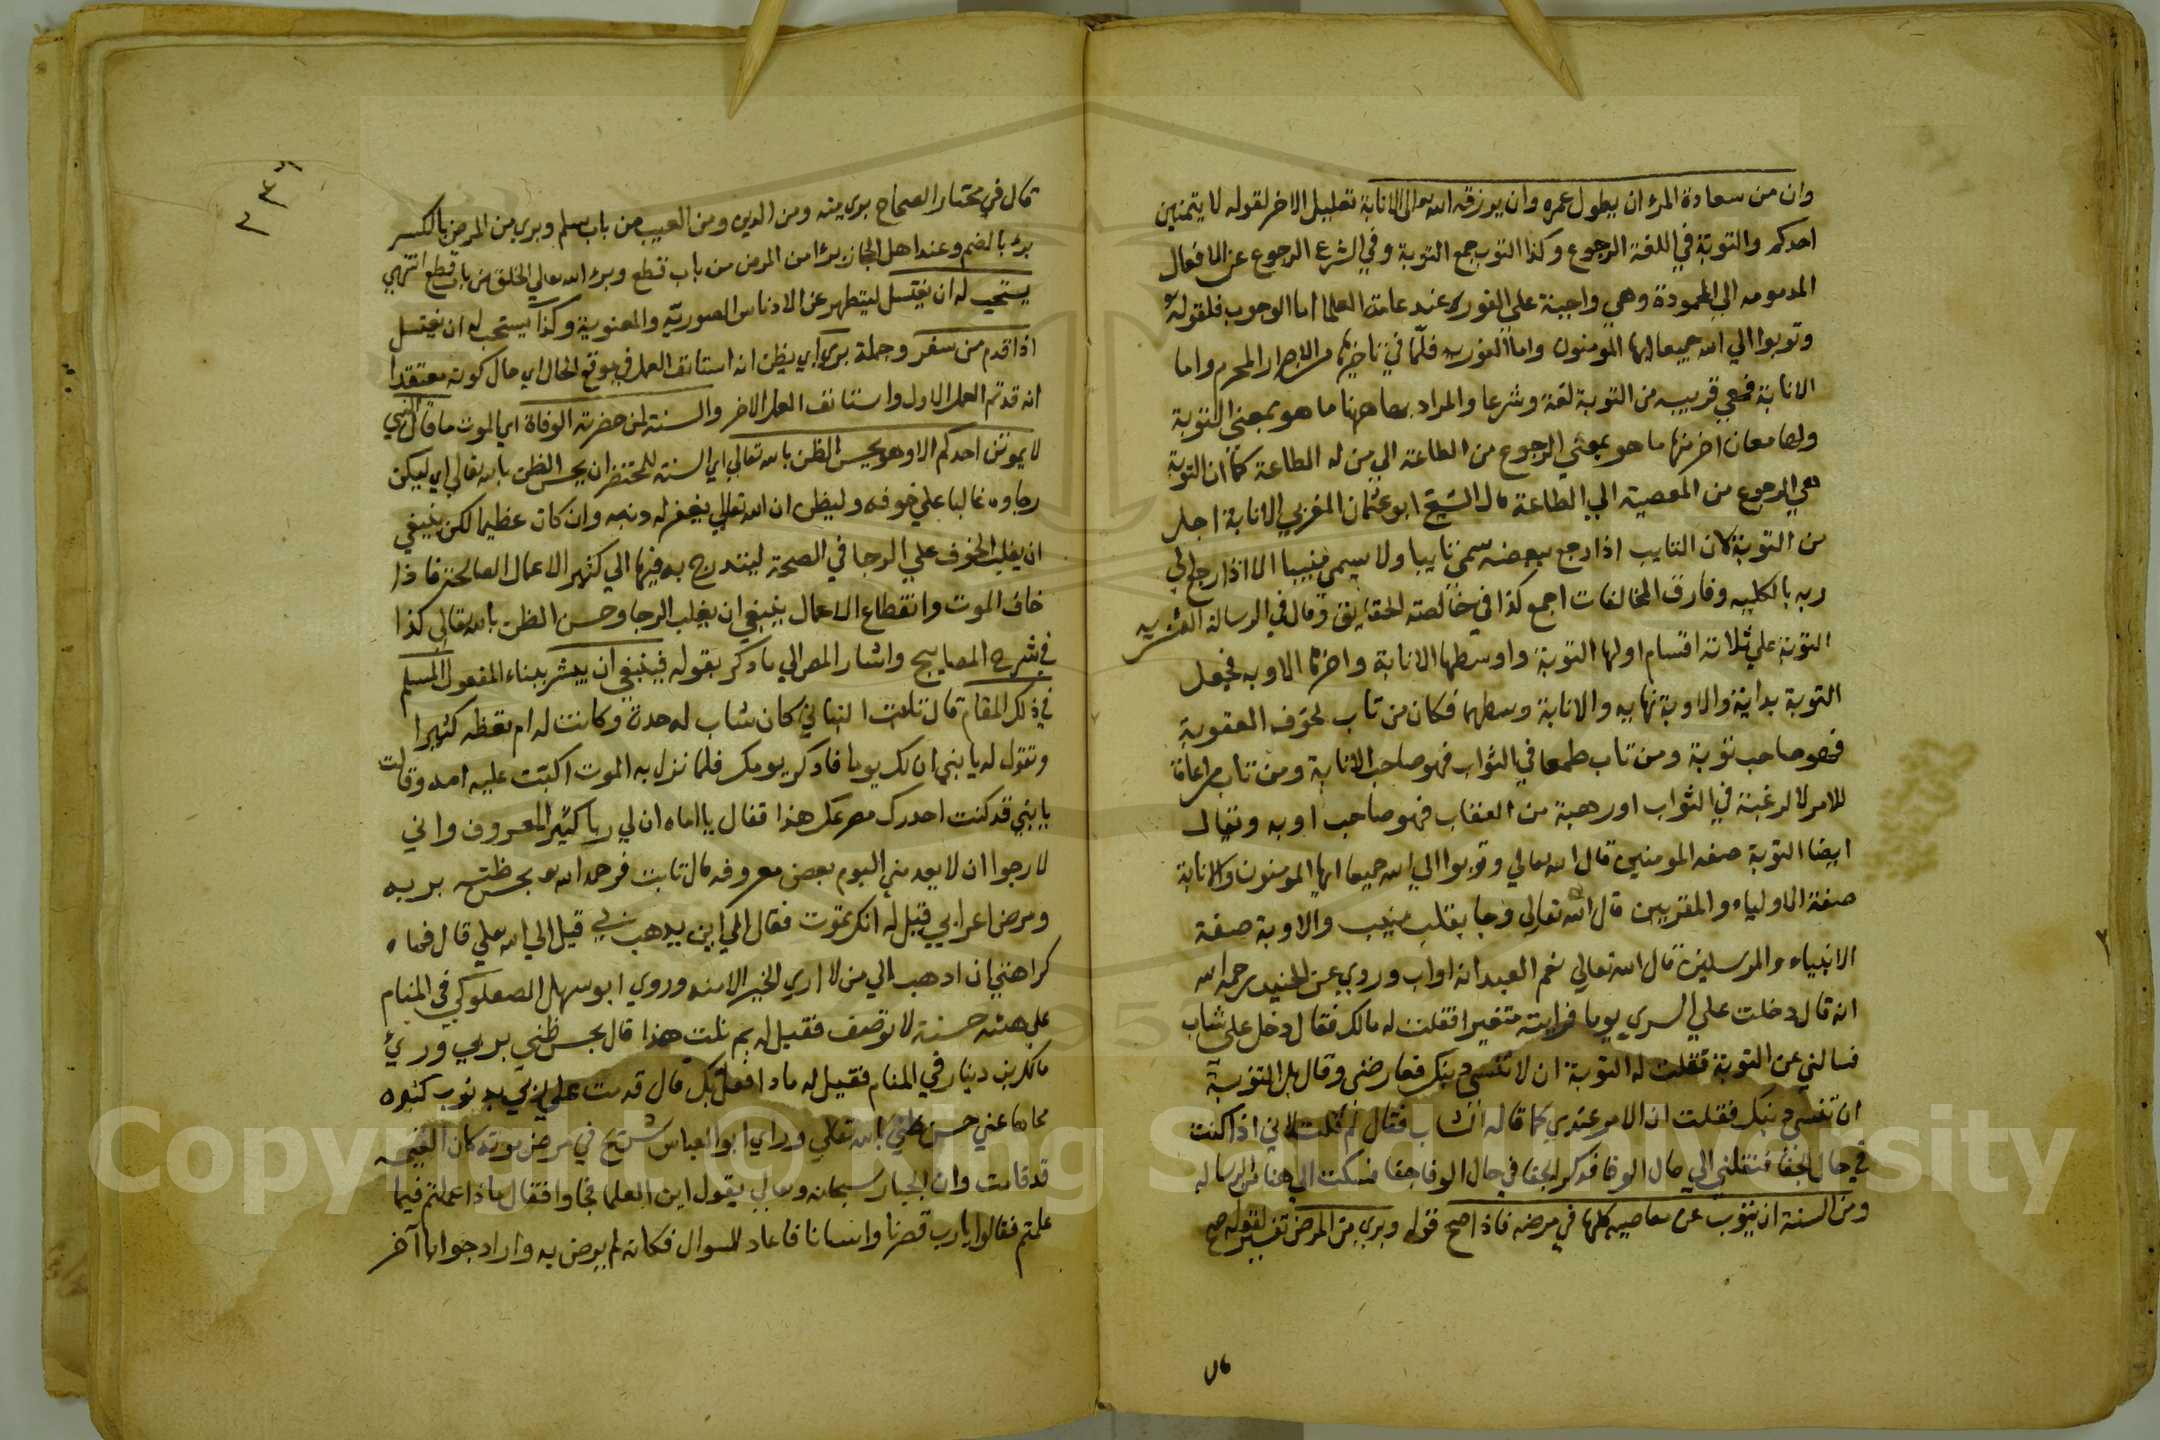 وان من سعادة المرء ان يطول عمره وان يرزقه الله تعالى الانابة تعليل الاخر لقوله لا يتمنين
احدكم والتوبة في اللغة الرجوع وكذا التوب جمع التوبة وفي الشرع الرجوع عن الافعال
المدمومه الي المحمودة وهي واجبة علي الفور عند عامة العلما اما الوجوب فلقوله
وتوبوا الي الله جميعا ايها المومنون واما الفوريه فلما في تاخيرها من الاصرار المحرم واما
الانابة فهي قريبه من التوبة لغة وشرعا والمراد بها ههنا ما هو بمعني التوبة
ولها معان اخر منها ما هو بمعني الرجوع من الطاعة الي من له الطاعة كما ان التوبة
هي الرجوع من المعصية الي الطاعة قال الشيخ ابو عثمان المغربي الانابة اجل
من التوبة لان التايب اذا رجع ببعضه سمي تايبا ولا يسمي منيبا الا اذا رجع الي
ربه بالكليه وفارق المخالفات اجمع كذا في خالصة الحقايق وقال في الرسالة القشيريه
التوبة علي ثلاثة اقسام اولها التوبة واوسطها الانابة واخرها الاوبه فجعل
التوبة بداية والاوبة نهايه والانابة وسطهما فكان من تاب لخوف العقوبة
فهو صاحب توبة ومن تاب طمعا في الثواب فهو صاحب الانابة ومن تاب مراعاة
للامر لا لرغبة في الثواب او رهبة من العقاب فهو صاحب اوبه ويقال
ايضا التوبة صفه المومنين قال الله تعالي وتوبوا الي الله جميعا ايها المومنون والانابة
صفة الاولياء والمقربين قال الله تعالي وجا بقلب منيب والاوبة صفة
الانبياء والمرسلين قال الله تعالي نعم العبد انه اواب وروي عن الجنيد رحمه الله
انه قال دخلت علي السري يوما فرايته متغيرا فقلت له مالك فقال دخل علي شاب
فسالني عن التوبة فقلت له التوبة ان لا تنسي ذنبك فعارضني وقال بل التوبة
ان تنسي ذنبك فقلت ان الامر عندي كما قاله الشاب فقال لم قلت لاني اذا كنت
في حال الجفا فنقلني الي حال الوفا فذكر الجفا في حال الوفا جفا فسكت الي هنا من الرساله
ومن السنة ان يتوب عن معاصيه كلها في مرضه فاذا صح قوله وبري من المرض تفسير لقوله صح
قال في مختار الصحاح بري منه ومن الدين ومن العيب من باب سلم وبري من المرض بالكسر
برء بالضم وعند اهل الحجاز برا من المرض من باب قطع وبرء الله تعالي الخلق من باب قطع انتهي
يستحب له ان يغتسل ليتطهر عن الادناس الصوريه والمعنوية وكذا يستحب له ان يغتسل
اذا قدم من سفر وجملة يري اي يظن انه استانف العمل في موقع الحال اي حال كونه معتقدا
انه قد تم العمل الاول واستانف العمل الاخر والسنة لمن حضرته الوفاة اي الموت ما قال النبي
لا يموتن احدكم الا وهو يحسن الظن بالله تعالي اي السنه للمحتضر ان يحسن الظن بالله تعالي اي ليكن
رجاوه غالبا علي خوفه وليظن ان الله تعالي يغفر له ذنبه وان كان عظيما لكن ينبغي
ان يغلب الخوف علي الرجا في الصحة ليتدرج به فيها الي كثير الاعمال الصالحة فاذا
خاف الموت وانقطاع الاعمال ينبغي ان يغلب الرجا وحسن الظن بالله تعالي كذا
في شرح المصابيح واشار المص الي ما ذكر بقوله فينبغي ان يبشر ببناء المفعول المسلم
في ذلك المقام قال ثابت البناني كان شاب له حدة وكانت له ام تعظه كثيرا
وتقول له يا بني ان لك يوما فاذكر يومك فلما نزل به الموت اكبت عليه امه وقالت
يا بني قد كنت احذرك مصرعك هذا فقال يا اماه ان لي ربا كثير المعروف واني
لارجوا ان لا يعدمني اليوم بعض معروفه قال ثابت فرحمه الله بحسن ظنه بربه
ومرض اعرابي فقيل له انك تموت فقال الي اين يذهب بي قيل الي الله تعالي قال فما
كراهتي ان اذهب الي من لا اري الخير الا منه وروي ابو سهل الصعلوكي في المنام
علي هيئه حسنة لا توصف فقيل له بم نلت هذا قال بحسن ظني بربي وري
مالك بن دينار في المنام فقيل له ماذا فعل بك قال قدمت علي ربي بذنوب كثيره
محاها عني حسن ظني بالله تعالي وراي ابو العباس سريج في مرض موته كان القيمه
قد قامت وان الجبار سبحانه وتعالي يقول اين العلما فجاوا فقال ماذا عملتم فيما
علمتم فقالوا يا رب قصرنا واسانا فاعاد السوال فكانه لم يرض به واراد جوابا آخر
Copyright © King Saud University